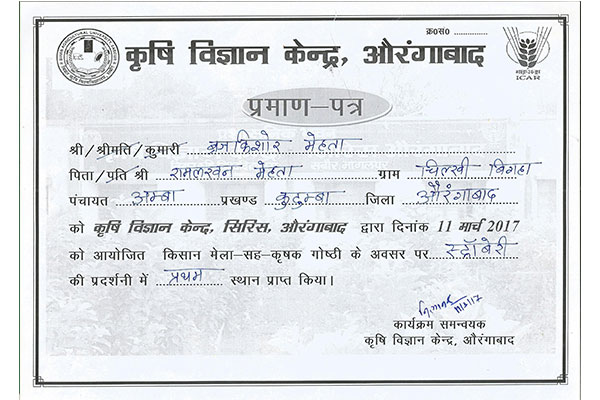 क्र०सं० ............
कृषि विज्ञान केन्द्र, औरंगाबाद
ICAR
प्रमाण-पत्र
श्री/श्रीमति/कुमारी ब्रजकिशोर मेहता
पिता/प्रति श्री रामलखन मेहता ग्राम चिल्खी बिगहा
पंचायत अम्बा प्रखण्ड कुटुम्बा जिला औरंगाबाद
को कृषि विज्ञान केन्द्र, सिरिस, औरंगाबाद द्वारा दिनांक 11 मार्च 2017
को आयोजित किसान मेला-सह-कृषक गोष्ठी के अवसर पर स्ट्रॉबेरी
की प्रदर्शनी में प्रथम स्थान प्राप्त किया।
कार्यक्रम समन्वयक
कृषि विज्ञान केन्द्र, औरंगाबाद